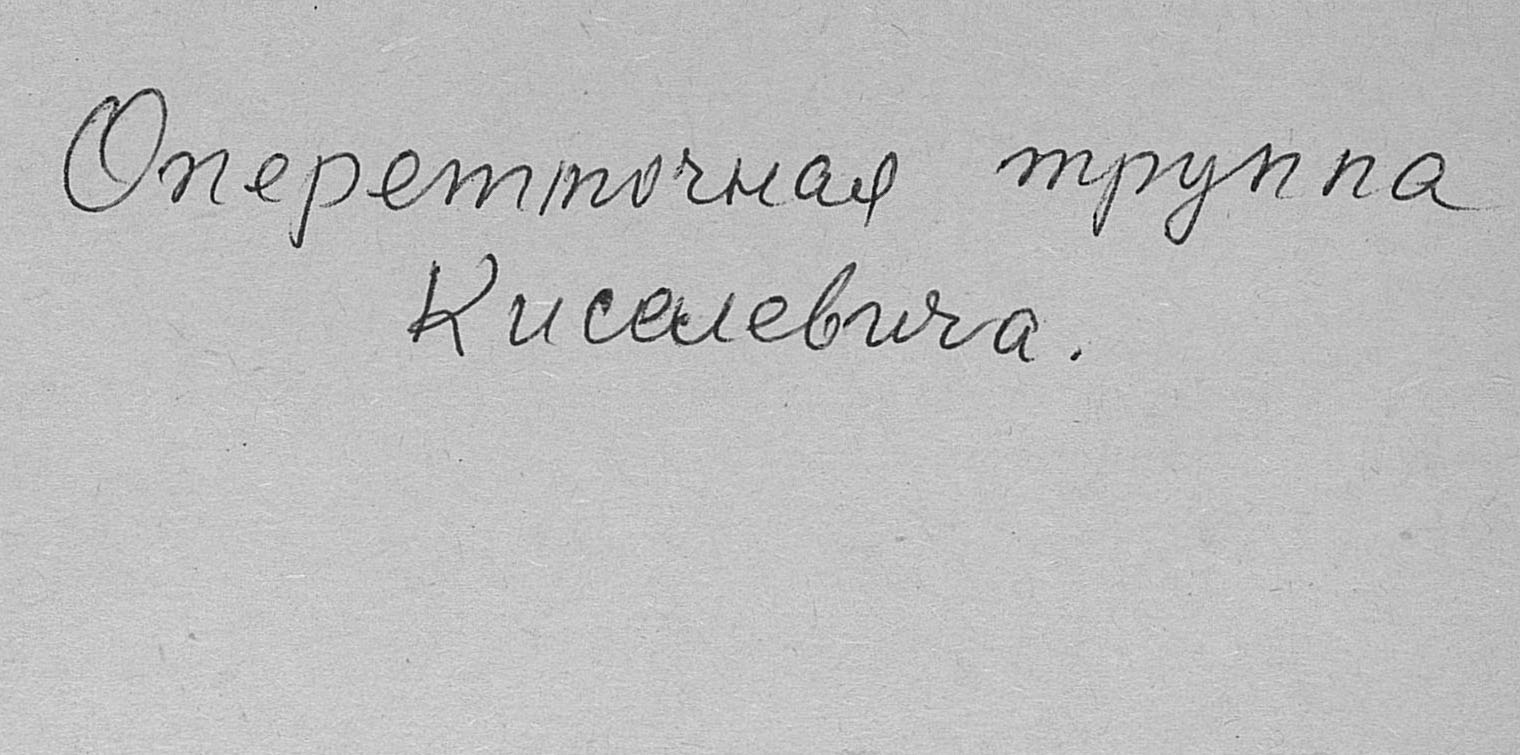 Опереточная труппа
Киселевича.